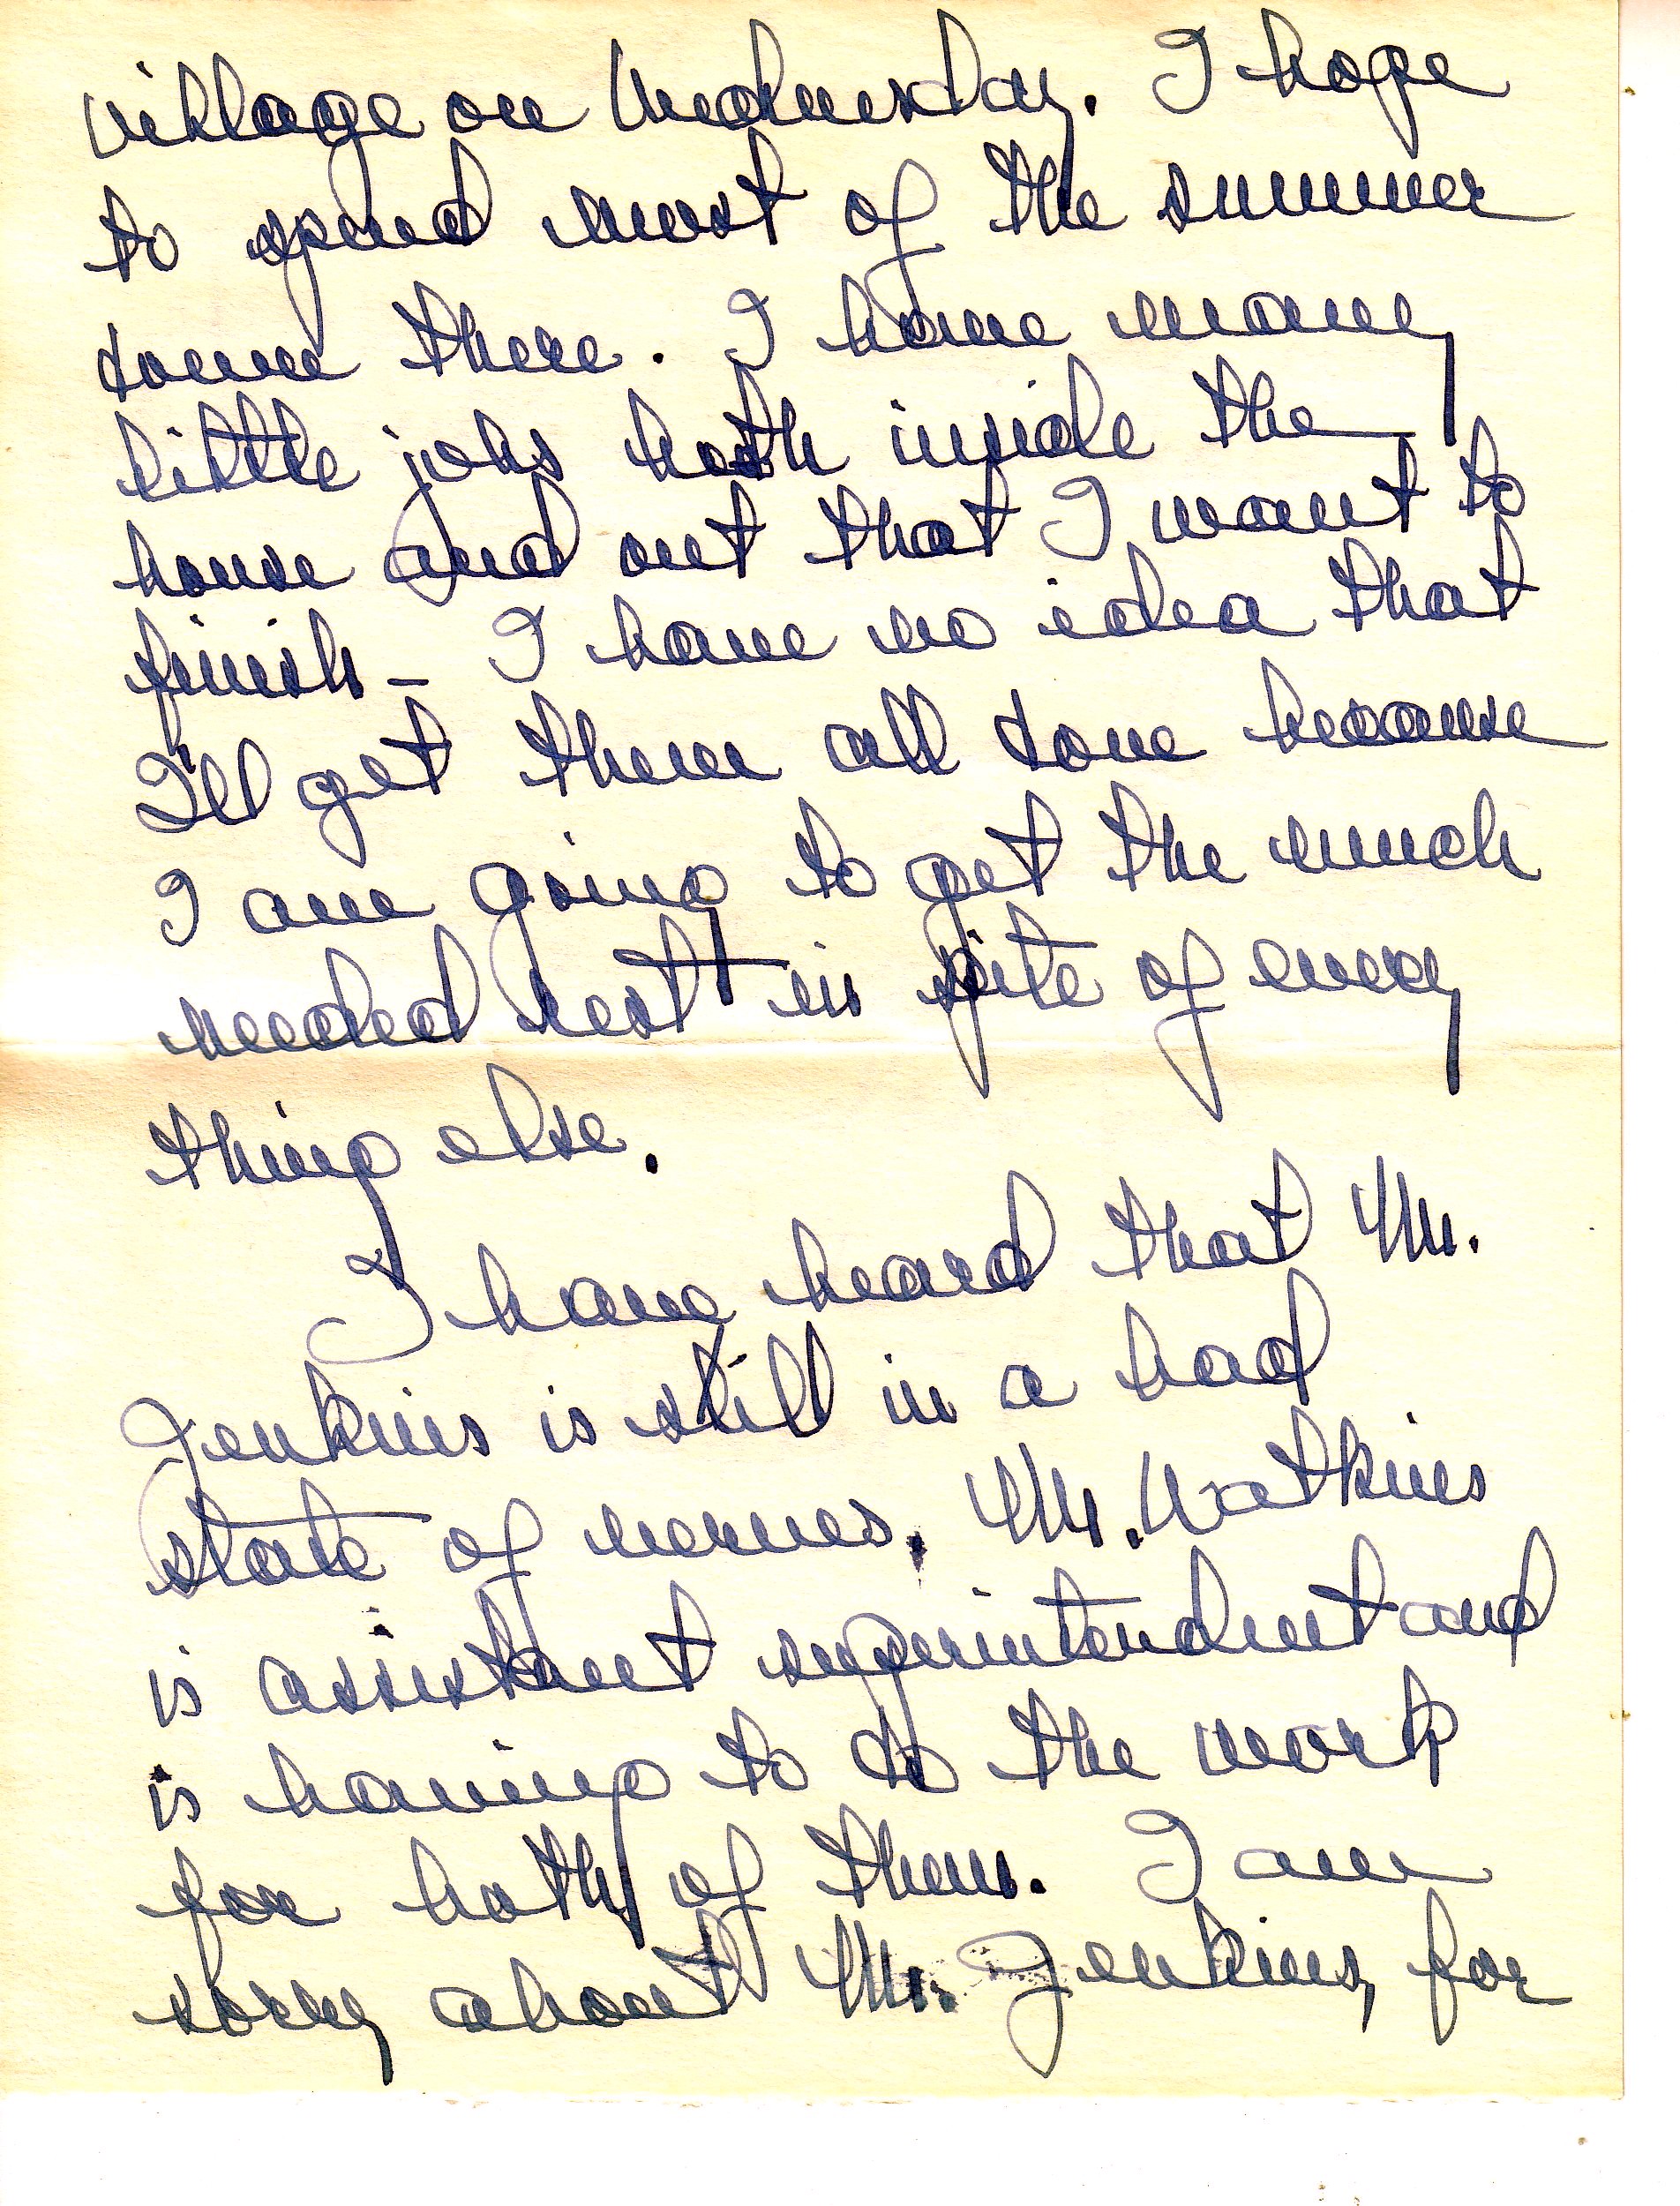 village on Wednesday. I hope
to spend most of the summer
down there. I have many
little jobs both inside the
house and out that I want to
finish - I have no idea that
I'll get them all done because
I am going to get the much
needed rest in spite of every
thing else.
I have heard that Mr.
Jenkins is still in a bad
state of nerves. Mr. Watkins
is assistant superintendent and
is having to do the work
for both of them. I am
sorry about Mr. Jenkins, for